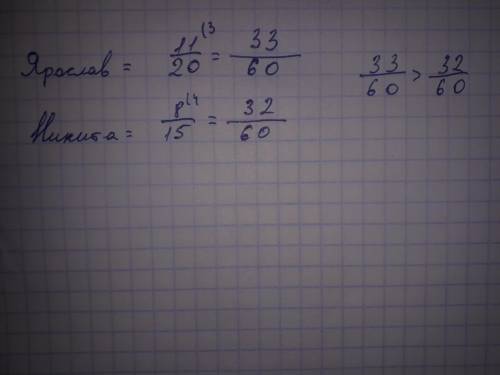 Ярослав = 11/20 (3 = 33/60
Никита = 8/15 (4 = 32/60
33/60 > 32/60